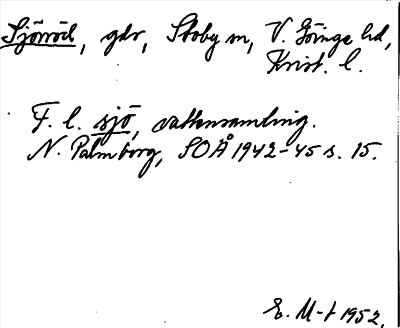 Sjöröd, gdr, Stoby sn, V. Göinge hd,
Krist. l.
F. l. sjö, vattensamling.
N. Palmborg, SOÅ 1942-45 s. 15.
E. M-t 1952.